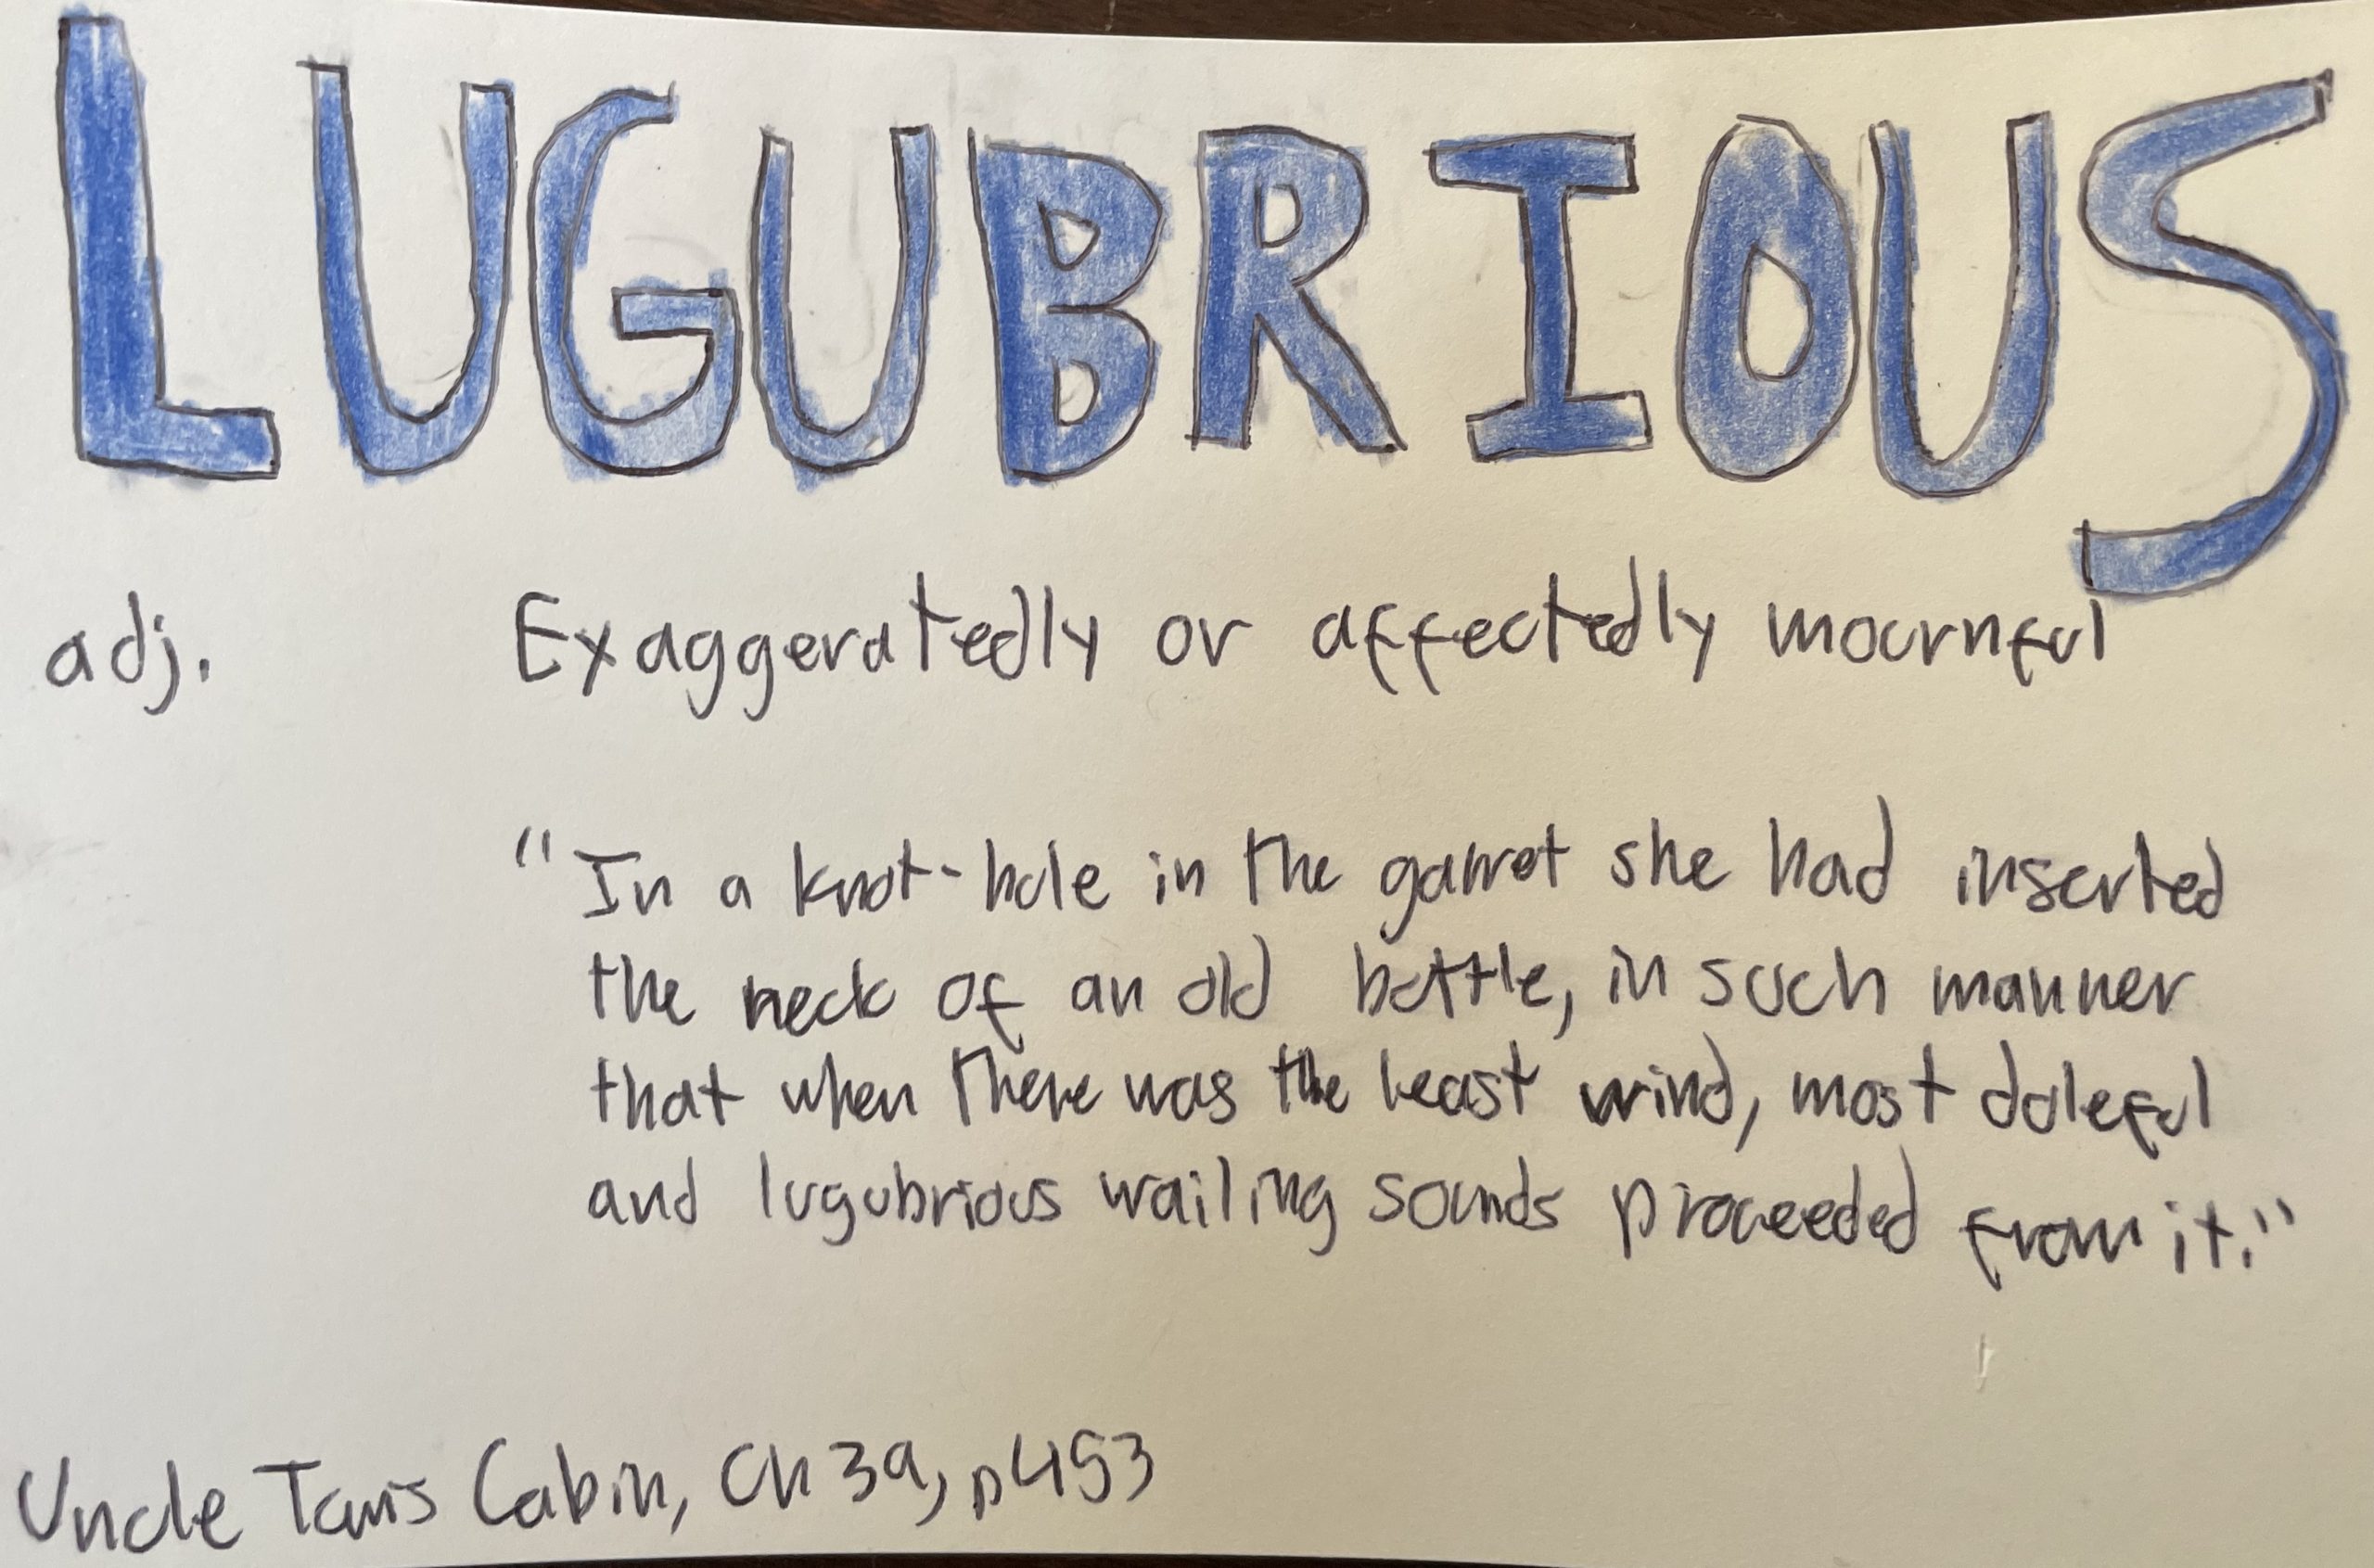 LUGUBRIOUS
adj. Exaggeratedly or affectedly mournful
"In a knot-hole in the garret she had inserted
the neck of an old bottle, in such manner
that when there was the least wind, most doleful
and lugubrious wailing sounds proceeded from it."
Uncle Tom's Cabin, Ch 39, p453